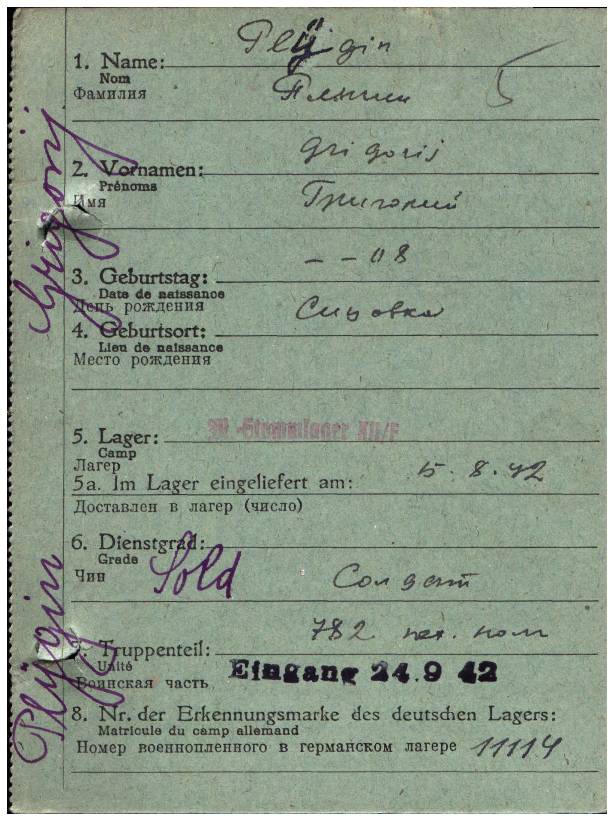 Plügin
1. Name:
Nom
Фамилия
Плыгин
Grigorij
2. Vornamen:
Prénoms
Имя
Григорий
– – 08
3. Geburtstag:
Date de naissance
День рождения
4. Geburtsort:
Lieu de naissance
Место рождения
5. Lager:
M.-Stammlager XII/F
Camp
Лагер
5a. Im Lager eingeliefert am: 15.8.42
Доставлен в лагер (число)
6. Dienstgrad:
Grade
Чин
Sold
Солдат
782 пех. полк
7. Truppenteil:
Unité
Воинская часть
Eingang 24.9 42
8. Nr. der Erkennungsmarke des deutschen Lagers:
Matricule du camp allemand
Номер военнопленного в германском лагере 11114
Plügin Grigorij